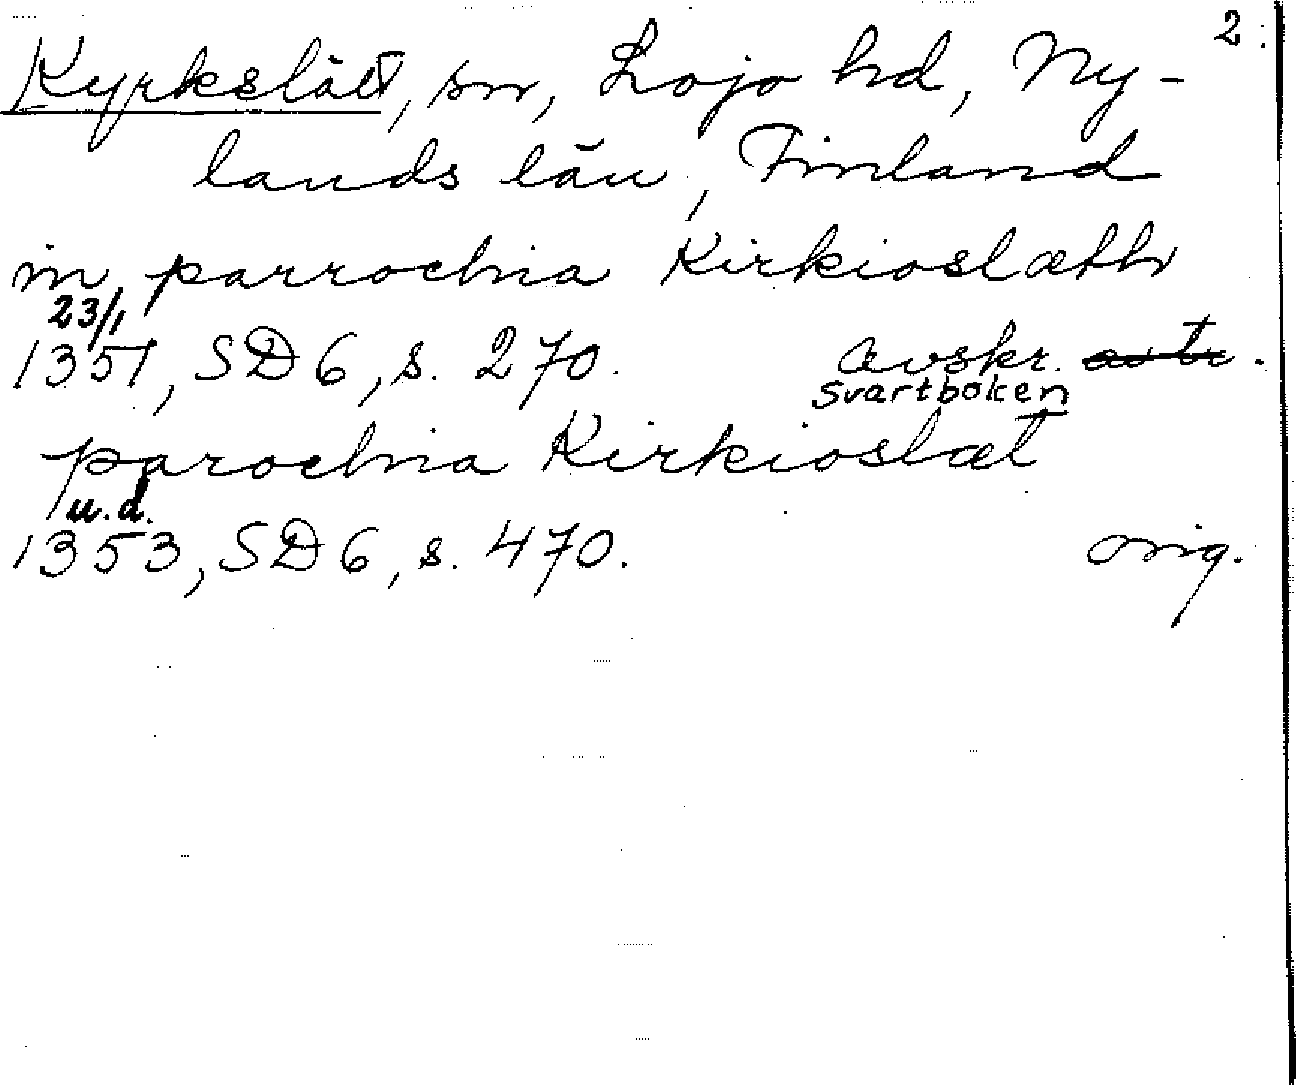 2.
Kyrkslätt, sn, Lojo hd, Ny-
lands län, Finland
in parrochia Kirkioslæth
23/1
1351, SD 6, s. 270. avskr.
svartboken
parochia Kirkioslæt
u.d.
1353, SD 6, s. 470. orig.